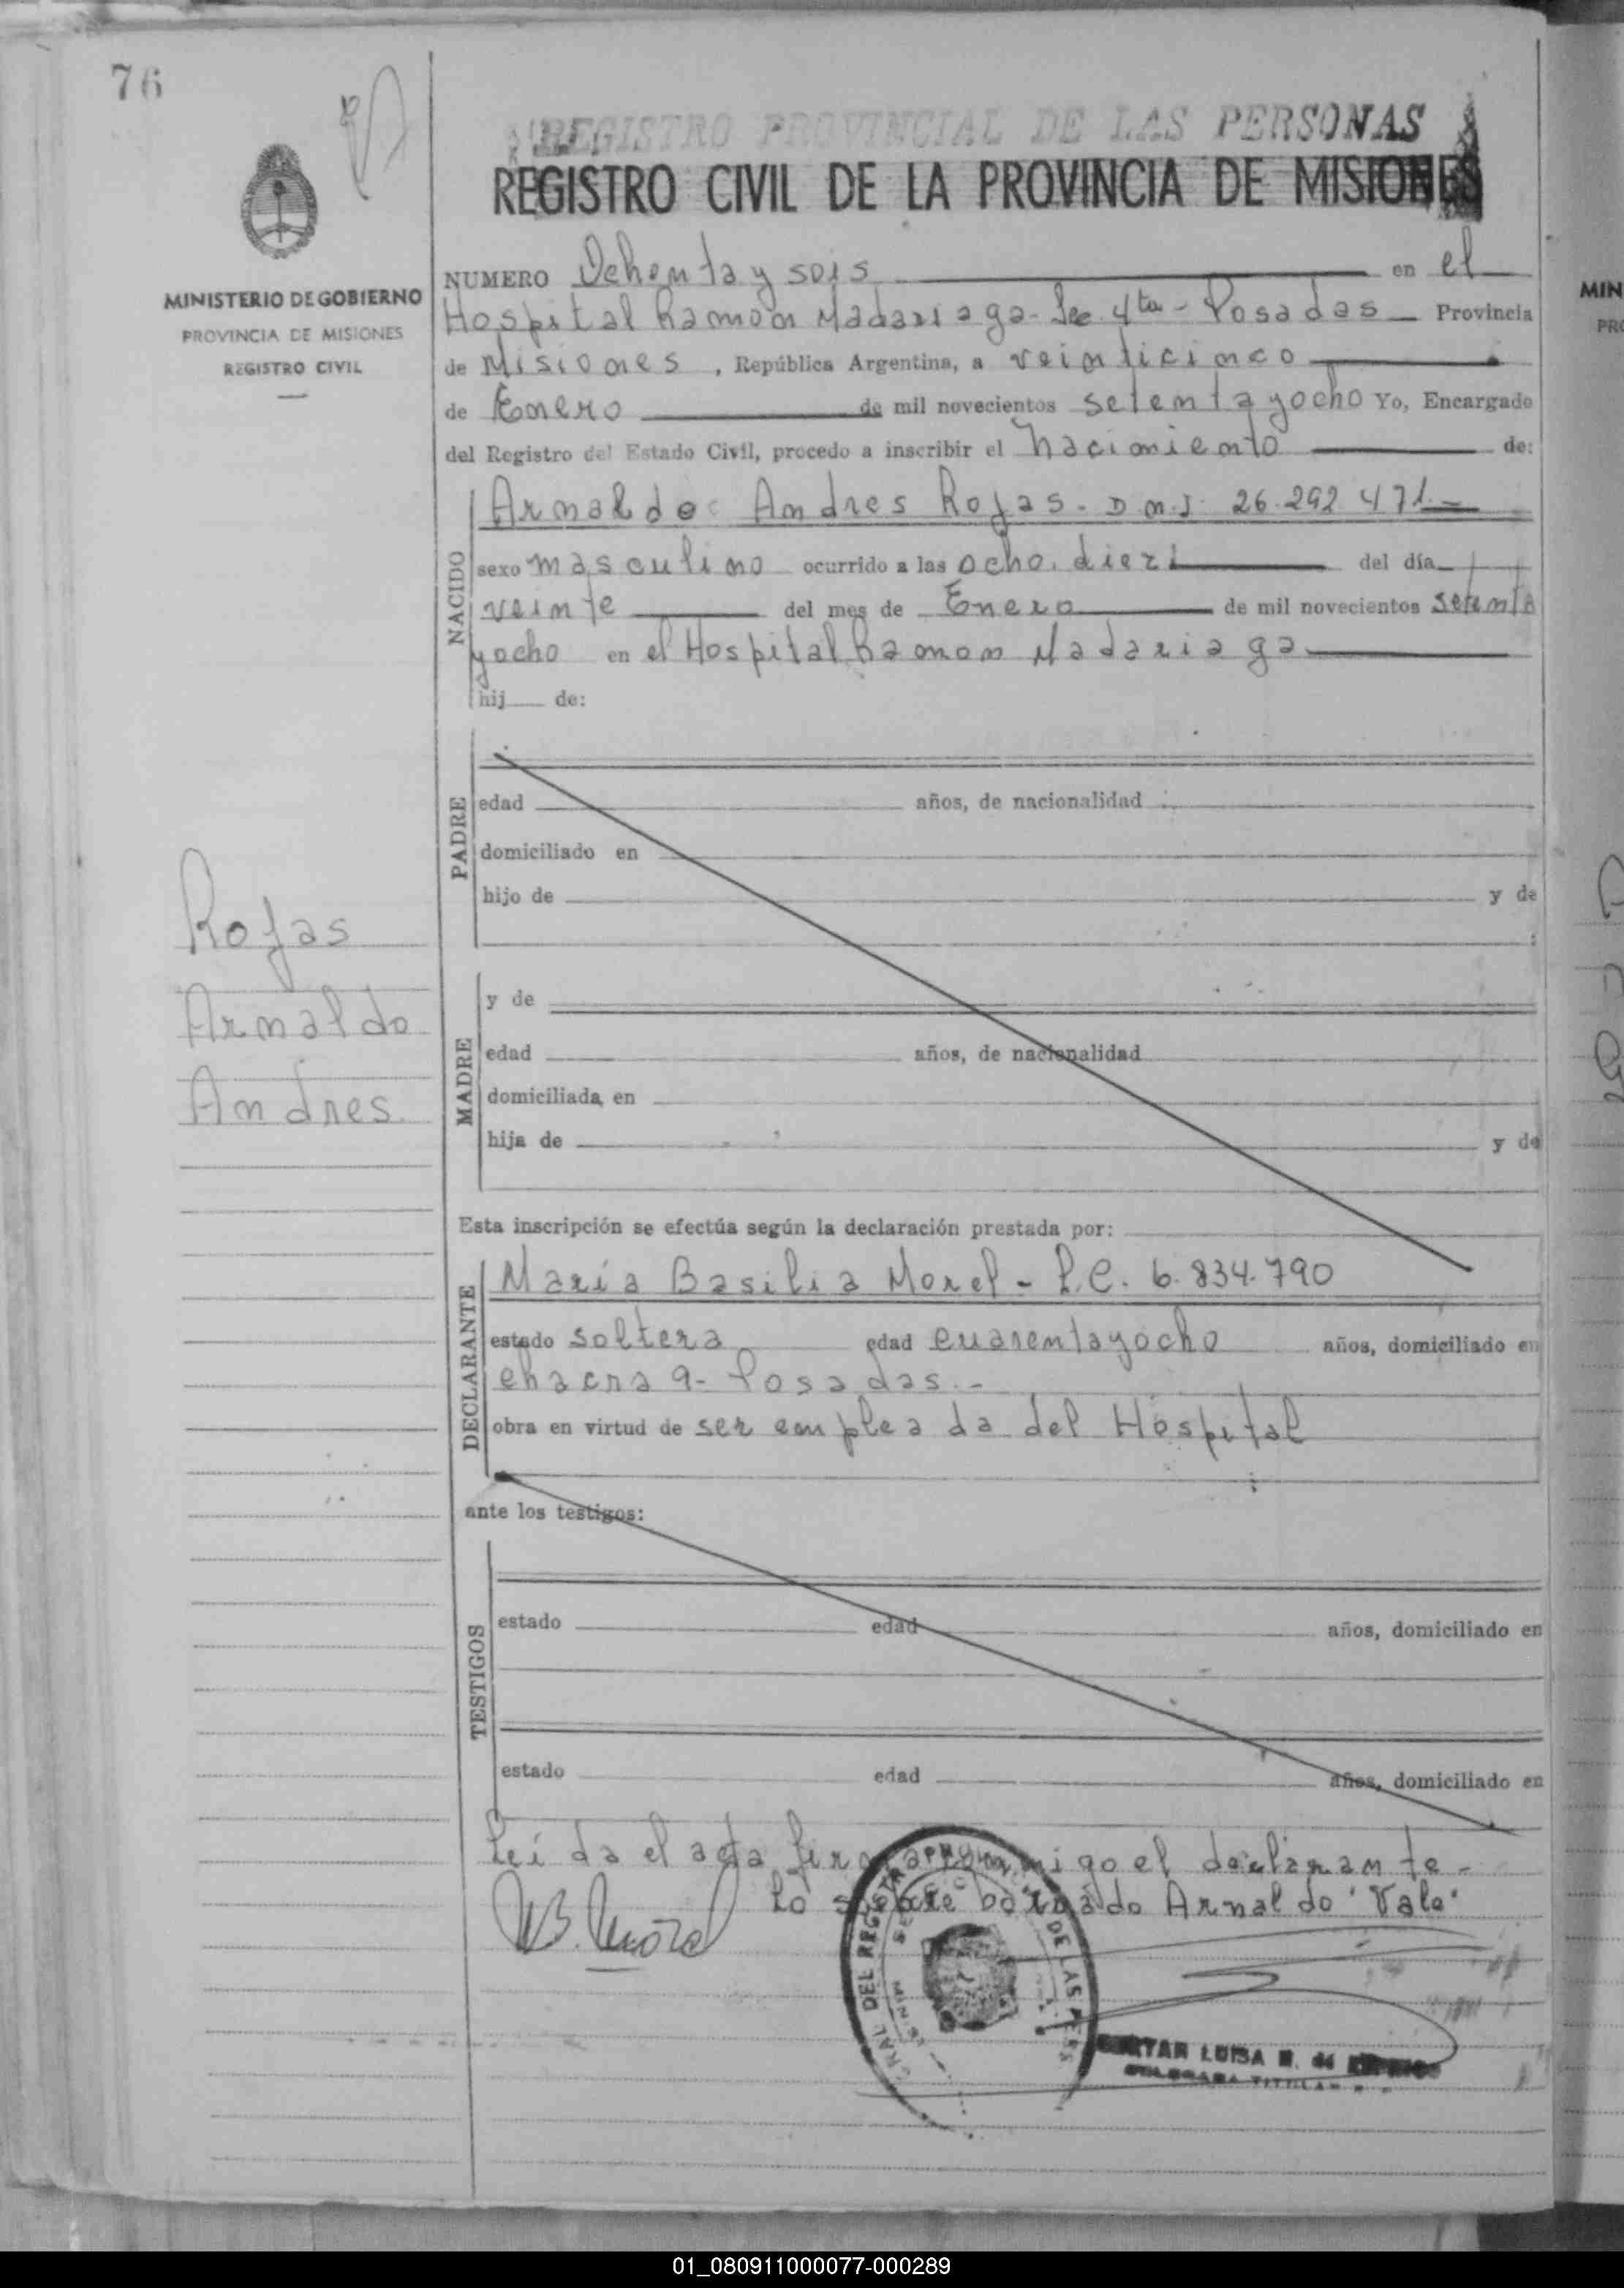 76
REGISTRO PROVINCIAL DE LAS PERSONAS
REGISTRO CIVIL DE LA PROVINCIA DE MISIONES
MINISTERIO DE GOBIERNO
PROVINCIA DE MISIONES
REGISTRO CIVIL
NUMERO Ochenta y seis en el
Hospital Ramon Madariaga - Sec. 4ta - Posadas Provincia
de Misiones, República Argentina, a veinticinco
de Enero de mil novecientos setentayocho Yo, Encargado
del Registro del Estado Civil, procedo a inscribir el nacimiento de:
NACIDO
Arnaldo Andres Rojas - D.N.I. 26.292.471.-
sexo masculino ocurrido a las ocho. diez del día
veinte del mes de Enero de mil novecientos setenta
yocho en el Hospital Ramon Madariaga
hij de:
PADRE
edad años, de nacionalidad
domiciliado en
hijo de y de
Rojas
Arnaldo
Andres.
MADRE
y de
edad años, de nacionalidad
domiciliada en
hija de y de
Esta inscripción se efectúa según la declaración prestada por:
DECLARANTE
María Basilia Morel - L.C. 6.834.790
estado soltera edad cuarentayocho años, domiciliado en
chacra 9 - Posadas.-
obra en virtud de ser empleada del Hospital
ante los testigos:
TESTIGOS
estado edad años, domiciliado en
estado edad años, domiciliado en
Leída el acta firma conmigo el declarante -
Lo sobre borrado Arnaldo "Vale"
B. Morel
DEL REGISTRO DE LAS PERS
LUISA
01_080911000077-000289